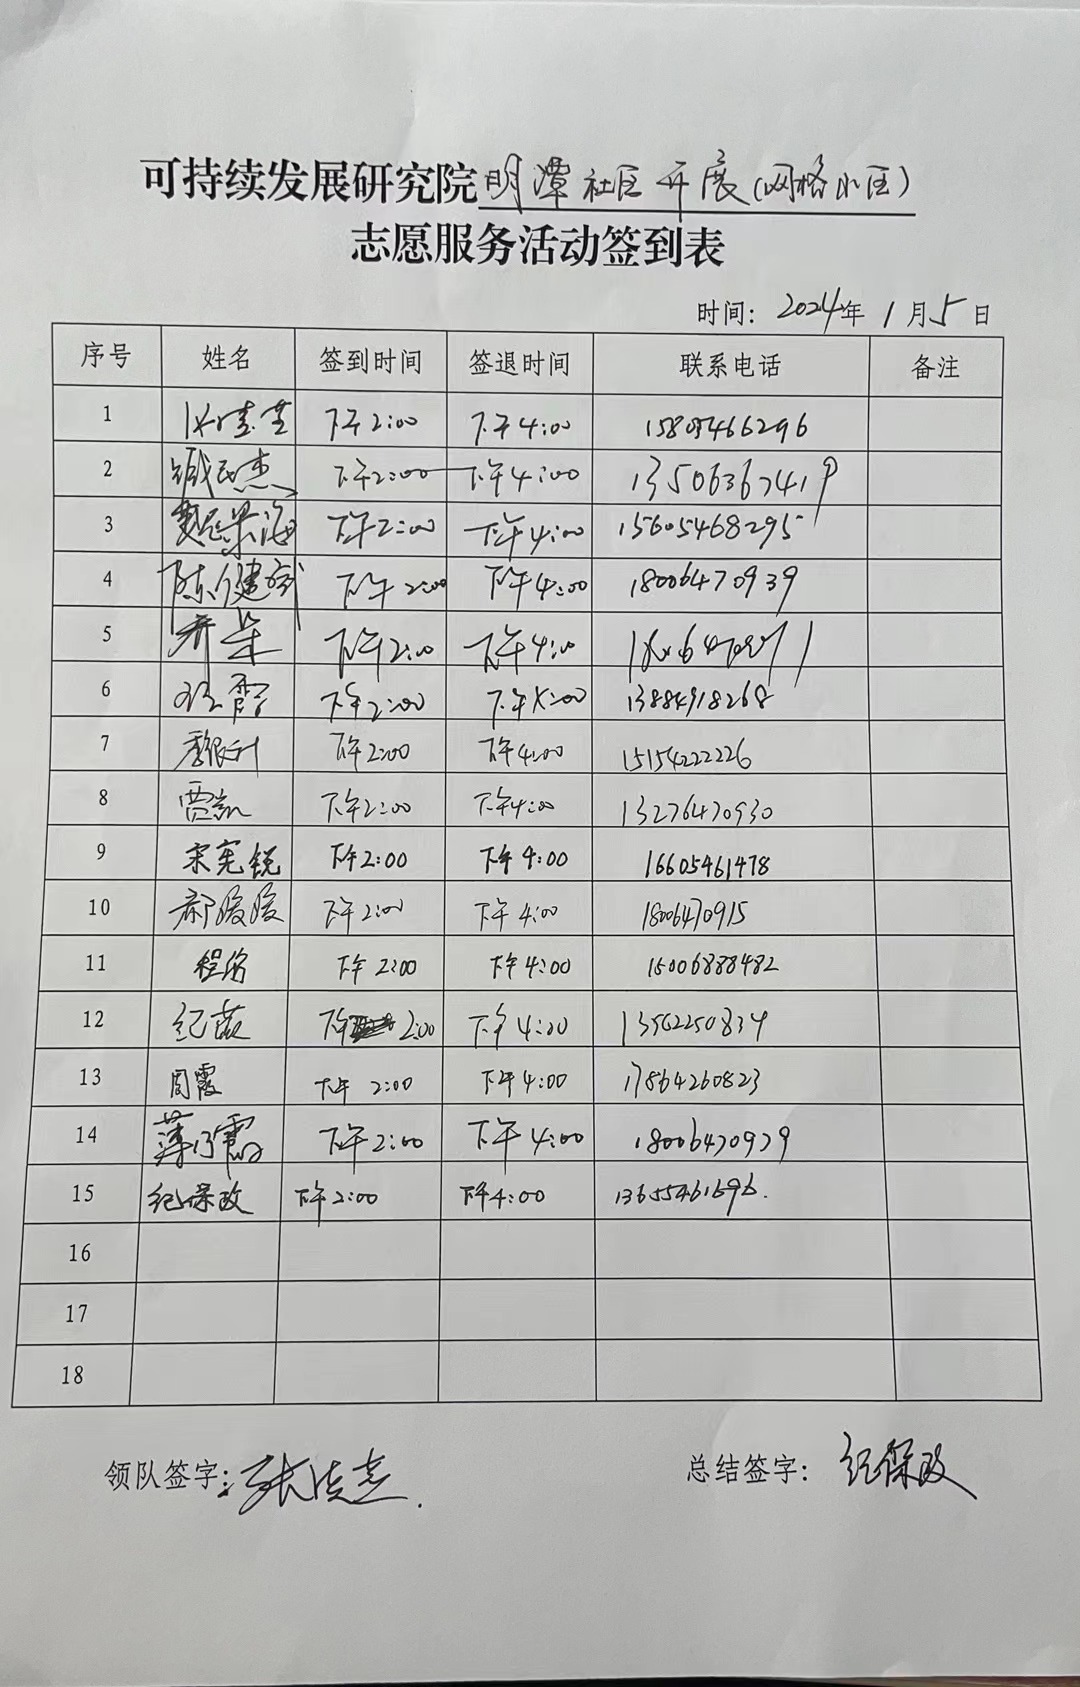 可持续发展研究院明潭社区开展(网格小区)
志愿服务活动签到表
时间: 2024年1月5日
序号 姓名 签到时间 签退时间 联系电话 备注
1 下午2:00 下午4:00 15805466296
2 臧民杰 下午2:00 下午4:00 13506367419
3 下午2:00 下午4:00 15605468295
4 陈健斌 下午2:00 下午4:00 18006470939
5 乔梁 下午2:00 下午4:00
6 下午2:00 下午4:00 13884918268
7 下午2:00 下午4:00 15154222226
8 贾凯 下午2:00 下午4:00 13276470930
9 宋宪锐 下午2:00 下午4:00 16605461478
10 郝媛媛 下午2:00 下午4:00 18006470915
11 下午2:00 下午4:00 15006888482
12 下午 2:00 下午4:00 13562250834
13 周霞 下午2:00 下午4:00 17864260823
14 薄乃霞 下午2:00 下午4:00 18006470929
15 纪保政 下午2:00 下午4:00 13655461696.
16
17
18
领队签字: 总结签字: 纪保政